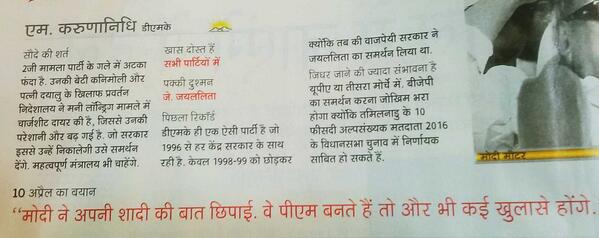 एम. करुणानिधि डीएमके
सौदे की शर्त
2जी मामला पार्टी के गले में अटका
फंदा है. उनकी बेटी कनिमोली और
पत्नी दयालु के खिलाफ प्रवर्तन
निदेशालय ने मनी लॉन्ड्रिंग मामले में
चार्जशीट दायर की है, जिससे उनकी
परेशानी और बढ़ गई है. जो सरकार
इससे उन्हें निकालेगी उसे समर्थन
देंगे. महत्वपूर्ण मंत्रालय भी चाहेंगे.
खास दोस्त हैं
सभी पार्टियों में
पक्की दुश्मन
जे. जयललिता
पिछला रिकॉर्ड
डीएमके ही एक ऐसी पार्टी है जो
1996 से हर केंद्र सरकार के साथ
रही है. केवल 1998-99 को छोड़कर
क्योंकि तब की वाजपेयी सरकार ने
जयललिता का समर्थन लिया था.
जिधर जाने की ज्यादा संभावना है
यूपीए या तीसरा मोर्चे में. बीजेपी
का समर्थन करना जोखिम भरा
होगा क्योंकि तमिलनाडु के 10
फीसदी अल्पसंख्यक मतदाता 2016
के विधानसभा चुनाव में निर्णायक
साबित हो सकते हैं.
मोदी मीटर
10 अप्रैल का बयान
“मोदी ने अपनी शादी की बात छिपाई. वे पीएम बनते हैं तो और भी कई खुलासे होंगे.